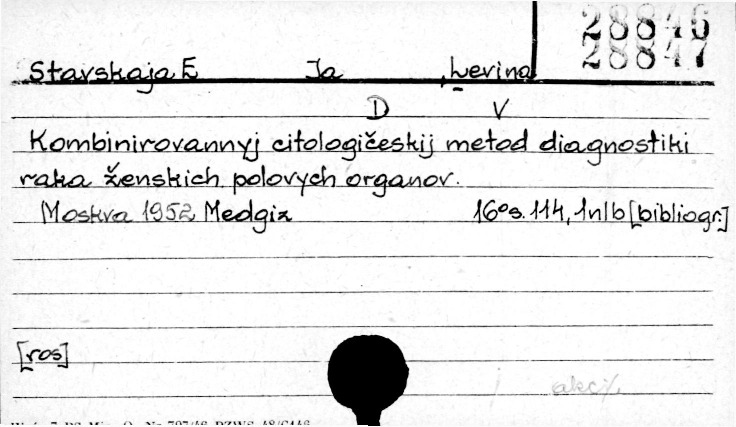 28846
28847
Stavskaja E Ja , Levina
D V
Kombinirovannyj citologičeskij metod diagnostiki
raka ženskich polovych organov.
Moskva 1952 Medgiz 16° s. 114, 1nlb [bibliogr.]
[ros]
akc.